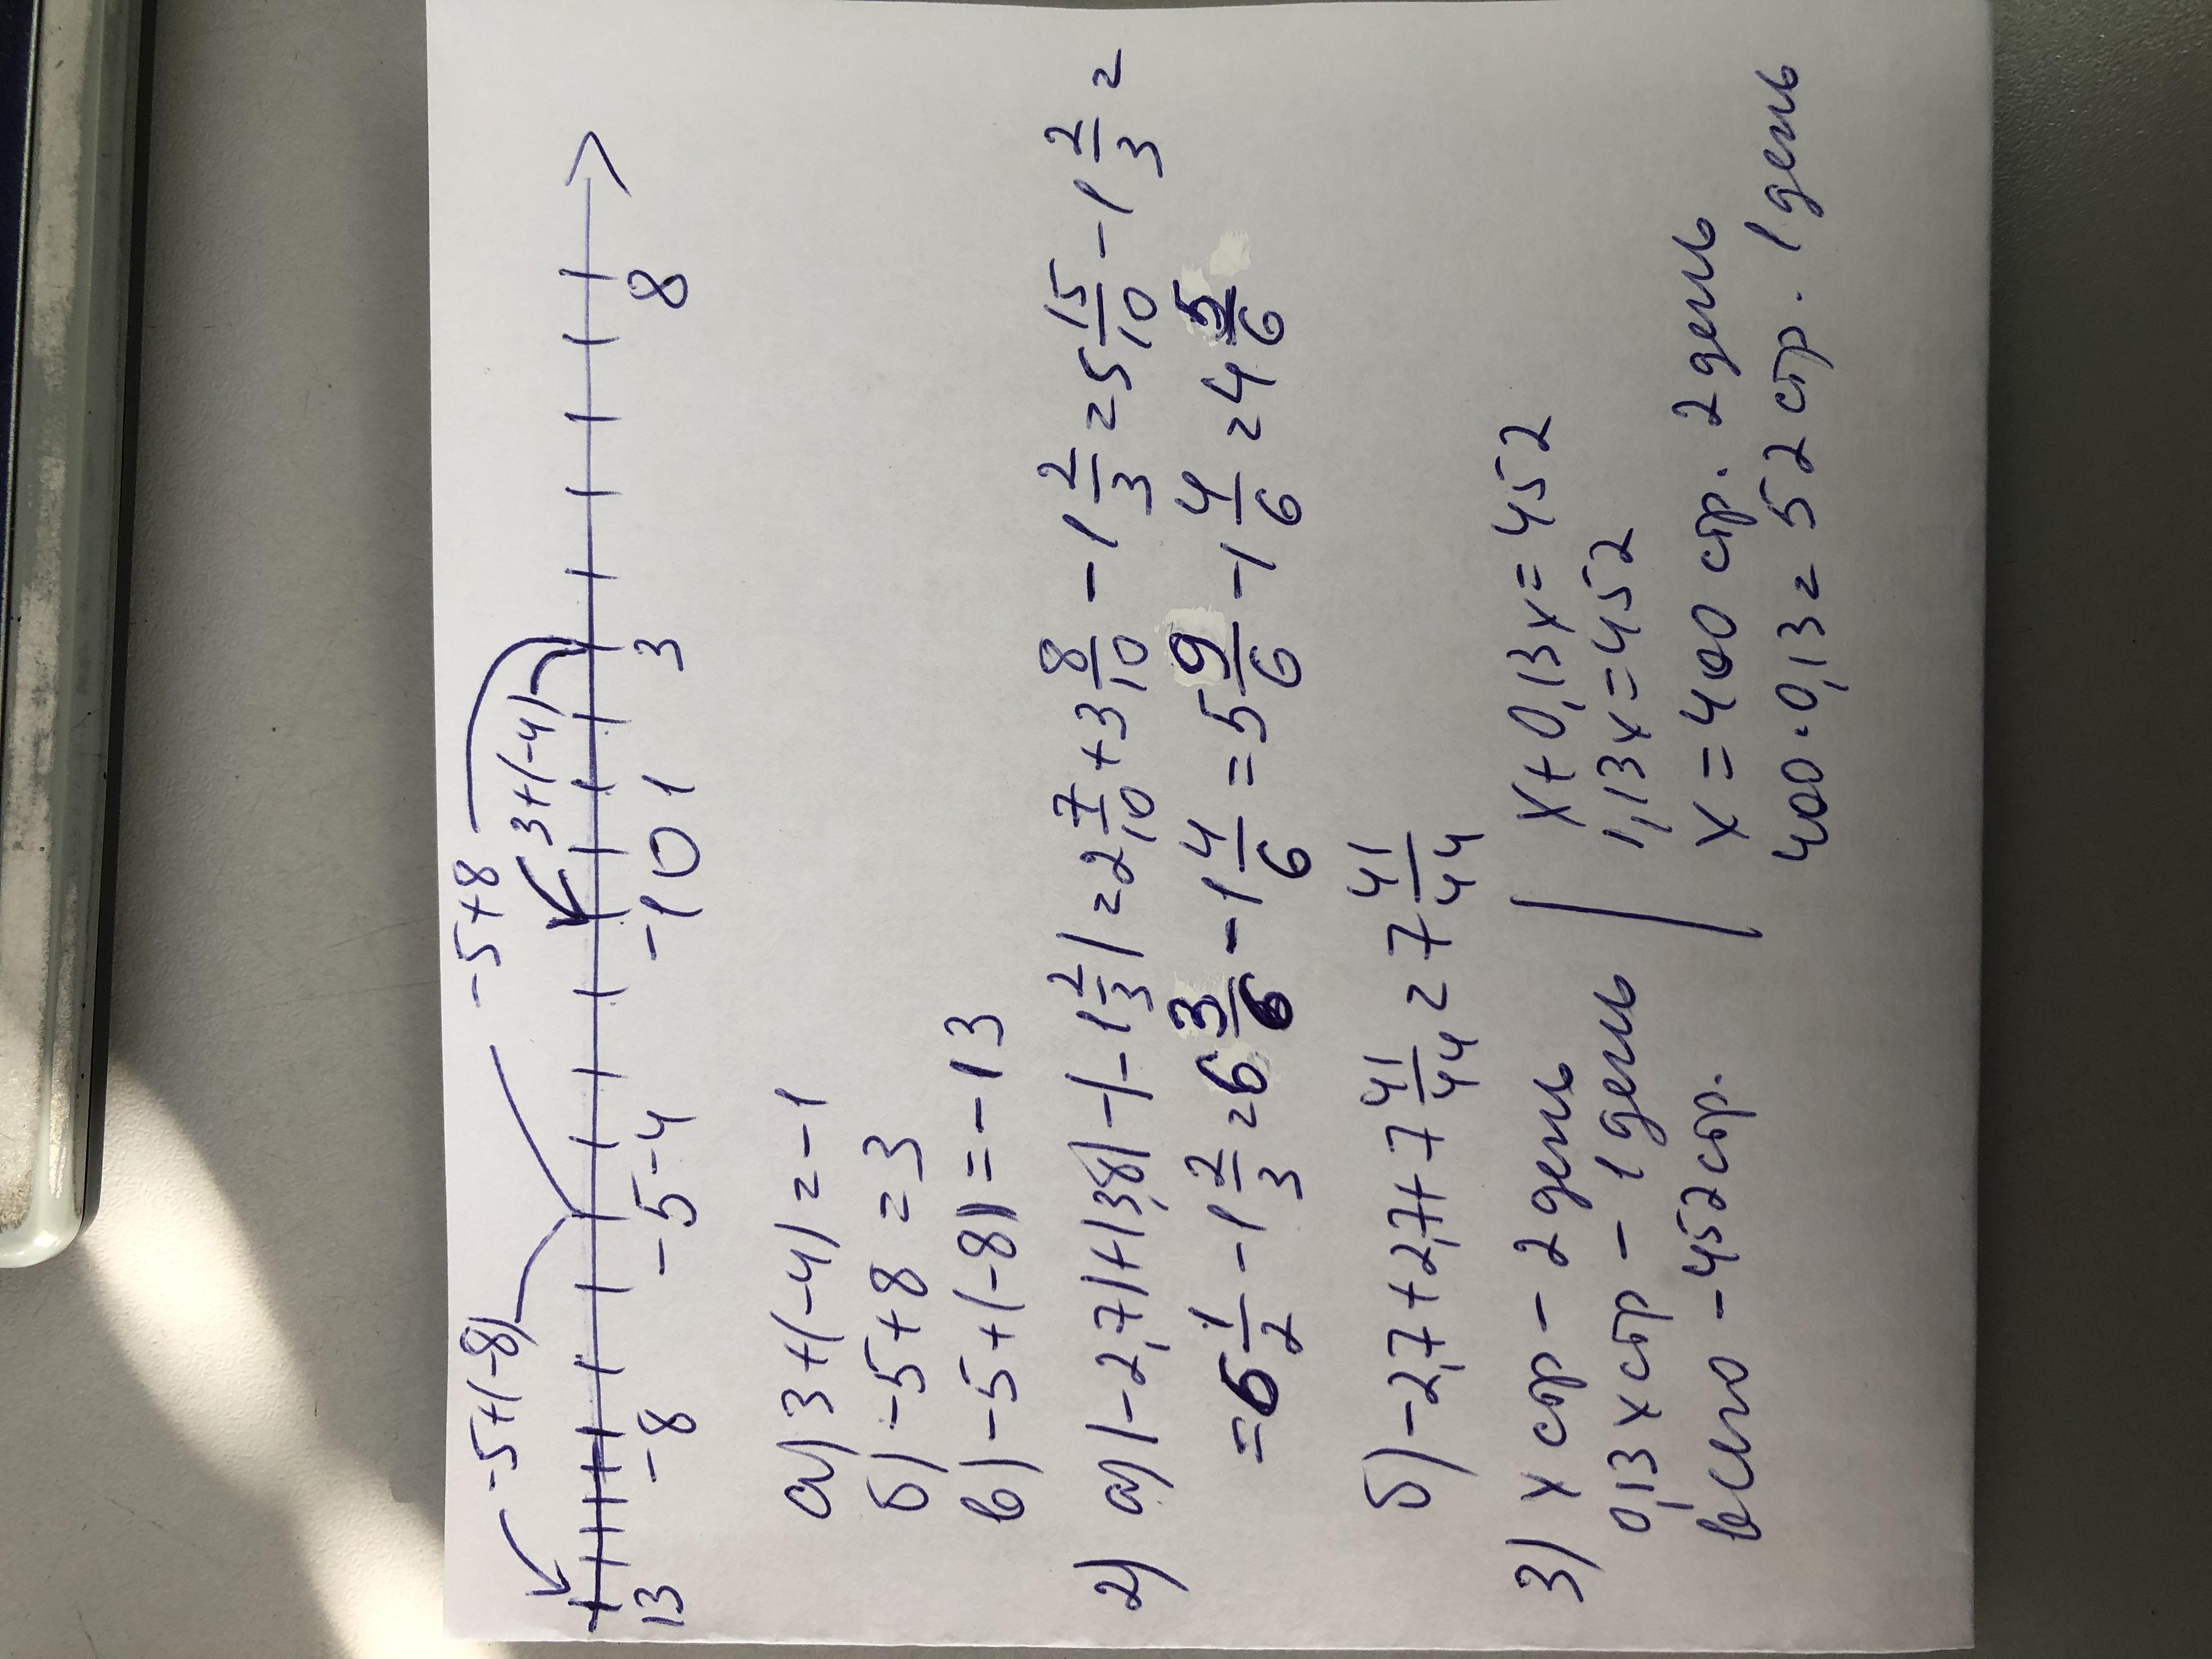 -5+(-8) -5+8
3+(-4)
13 -8 -5 -4 -1 0 1 3 8
а) 3+(-4)=-1
б) -5+8=3
в) -5+(-8)=-13
2) а) |-2,7|+|3,8|-|-1 2/3|=2 7/10+3 8/10-1 2/3=5 15/10-1 2/3=
=6 1/2-1 2/3=6 3/6-1 4/6=5 9/6-1 4/6=4 5/6
б) -2,7+2,7+7 41/44=7 41/44
3) x стр - 2 день
0,13x стр - 1 день
всего - 452 стр.
x+0,13x=452
1,13x=452
x=400 стр. 2 день
400·0,13=52 стр. 1 день